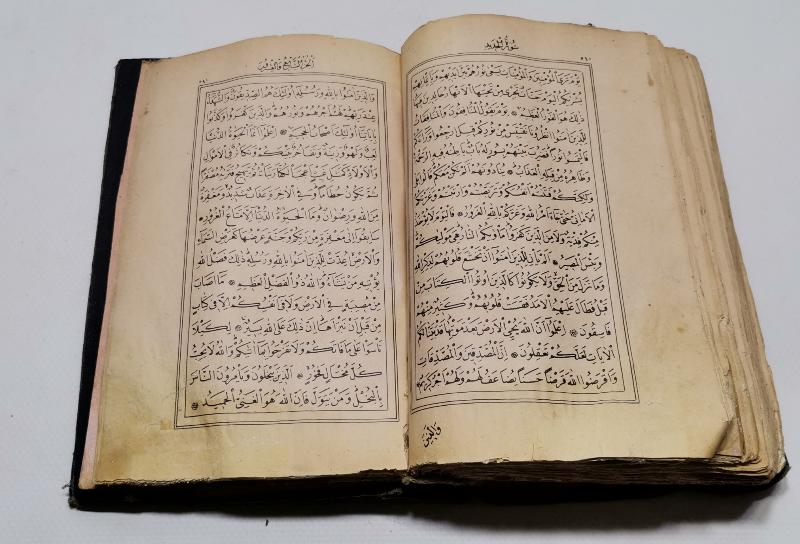 سُورَةُ الْحَدِيدِ
يَوْمَ تَرَى الْمُؤْمِنِينَ وَالْمُؤْمِنَاتِ يَسْعٰى نُورُهُمْ بَيْنَ اَيْدِيهِمْ وَبِاَيْمَانِهِمْ
بُشْرٰيكُمُ الْيَوْمَ جَنَّاتٌ تَجْرِي مِنْ تَحْتِهَا الْاَنْهَارُ خَالِدِينَ فِيهَا
ذٰلِكَ هُوَ الْفَوْزُ الْعَظِيمُ ۞ يَوْمَ يَقُولُ الْمُنَافِقُونَ وَالْمُنَافِقَاتُ
لِلَّذِينَ اٰمَنُوا انْظُرُونَا نَقْتَبِسْ مِنْ نُورِكُمْ قِيلَ ارْجِعُوا وَرَاءَكُمْ
فَالْتَمِسُوا نُورًا فَضُرِبَ بَيْنَهُمْ بِسُورٍ لَهُ بَابٌ بَاطِنُهُ فِيهِ الرَّحْمَةُ
وَظَاهِرُهُ مِنْ قِبَلِهِ الْعَذَابُ ۞ يُنَادُونَهُمْ اَلَمْ نَكُنْ مَعَكُمْ قَالُوا بَلٰى
وَلٰكِنَّكُمْ فَتَنْتُمْ اَنْفُسَكُمْ وَتَرَبَّصْتُمْ وَارْتَبْتُمْ وَغَرَّتْكُمُ
الْاَمَانِيُّ حَتّٰى جَاءَ اَمْرُ اللّٰهِ وَغَرَّكُمْ بِاللّٰهِ الْغَرُورُ ۞ فَالْيَوْمَ لَا يُؤْخَذُ
مِنْكُمْ فِدْيَةٌ وَلَا مِنَ الَّذِينَ كَفَرُوا مَأْوٰيكُمُ النَّارُ هِيَ مَوْلٰيكُمْ
وَبِئْسَ الْمَصِيرُ ۞ اَلَمْ يَأْنِ لِلَّذِينَ اٰمَنُوا اَنْ تَخْشَعَ قُلُوبُهُمْ لِذِكْرِ اللّٰهِ
وَمَا نَزَلَ مِنَ الْحَقِّ وَلَا يَكُونُوا كَالَّذِينَ اُوتُوا الْكِتَابَ مِنْ
قَبْلُ فَطَالَ عَلَيْهِمُ الْاَمَدُ فَقَسَتْ قُلُوبُهُمْ وَكَثِيرٌ مِنْهُمْ
فَاسِقُونَ ۞ اِعْلَمُوا اَنَّ اللّٰهَ يُحْيِي الْاَرْضَ بَعْدَ مَوْتِهَا قَدْ بَيَّنَّا لَكُمُ
الْاٰيَاتِ لَعَلَّكُمْ تَعْقِلُونَ ۞ اِنَّ الْمُصَّدِّقِينَ وَالْمُصَّدِّقَاتِ
وَاَقْرَضُوا اللّٰهَ قَرْضًا حَسَنًا يُضَاعَفُ لَهُمْ وَلَهُمْ اَجْرٌ كَرِيمٌ ۞
وَالَّذِينَ
اَلْجُزْءُ السَّابِعُ وَالْعِشْرُونَ
وَالَّذِينَ اٰمَنُوا بِاللّٰهِ وَرُسُلِهِ اُولٰئِكَ هُمُ الصِّدِّيقُونَ وَالشُّهَدَاءُ
عِنْدَ رَبِّهِمْ لَهُمْ اَجْرُهُمْ وَنُورُهُمْ وَالَّذِينَ كَفَرُوا وَكَذَّبُوا
بِاٰيَاتِنَا اُولٰئِكَ اَصْحَابُ الْجَحِيمِ ۞ اِعْلَمُوا اَنَّمَا الْحَيٰوةُ الدُّنْيَا
لَعِبٌ وَلَهْوٌ وَزِينَةٌ وَتَفَاخُرٌ بَيْنَكُمْ وَتَكَاثُرٌ فِي الْاَمْوَالِ
وَالْاَوْلَادِ كَمَثَلِ غَيْثٍ اَعْجَبَ الْكُفَّارَ نَبَاتُهُ ثُمَّ يَهِيجُ فَتَرٰيهُ مُصْفَرًّا
ثُمَّ يَكُونُ حُطَامًا وَفِي الْاٰخِرَةِ عَذَابٌ شَدِيدٌ وَمَغْفِرَةٌ
مِنَ اللّٰهِ وَرِضْوَانٌ وَمَا الْحَيٰوةُ الدُّنْيَا اِلَّا مَتَاعُ الْغُرُورِ ۞
سَابِقُوا اِلٰى مَغْفِرَةٍ مِنْ رَبِّكُمْ وَجَنَّةٍ عَرْضُهَا كَعَرْضِ السَّمَاءِ
وَالْاَرْضِ اُعِدَّتْ لِلَّذِينَ اٰمَنُوا بِاللّٰهِ وَرُسُلِهِ ذٰلِكَ فَضْلُ اللّٰهِ
يُؤْتِيهِ مَنْ يَشَاءُ وَاللّٰهُ ذُو الْفَضْلِ الْعَظِيمِ ۞ مَا اَصَابَ
مِنْ مُصِيبَةٍ فِي الْاَرْضِ وَلَا فِي اَنْفُسِكُمْ اِلَّا فِي كِتَابٍ
مِنْ قَبْلِ اَنْ نَبْرَاَهَا اِنَّ ذٰلِكَ عَلَى اللّٰهِ يَسِيرٌ ۞ لِكَيْلَا
تَأْسَوْا عَلٰى مَا فَاتَكُمْ وَلَا تَفْرَحُوا بِمَا اٰتٰيكُمْ وَاللّٰهُ لَا يُحِبُّ
كُلَّ مُخْتَالٍ فَخُورٍ ۞ اَلَّذِينَ يَبْخَلُونَ وَيَأْمُرُونَ النَّاسَ
بِالْبُخْلِ وَمَنْ يَتَوَلَّ فَاِنَّ اللّٰهَ هُوَ الْغَنِيُّ الْحَمِيدُ ۞